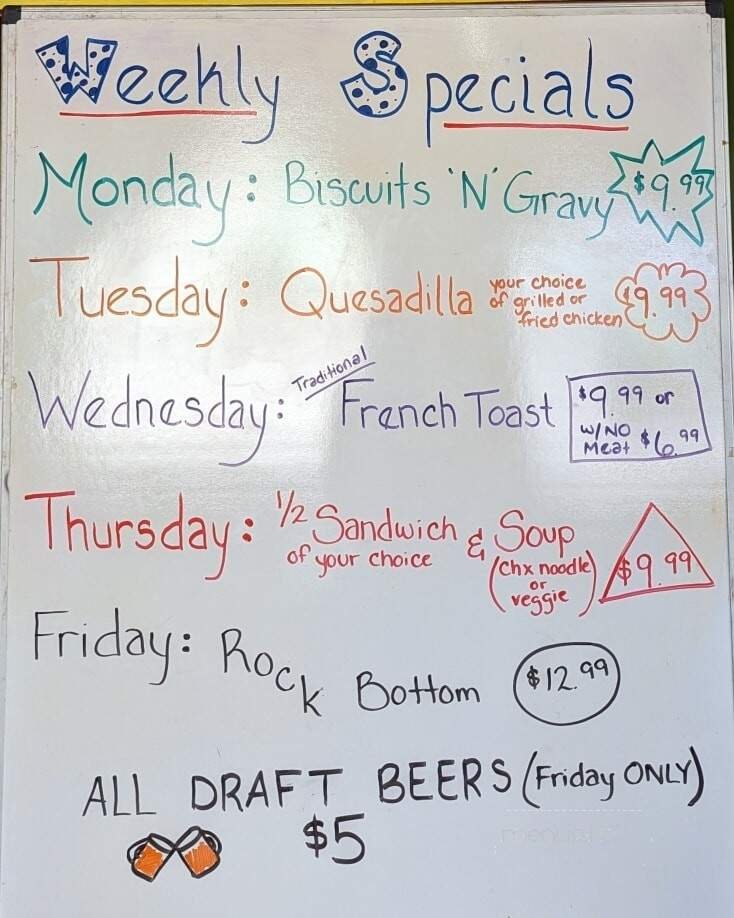 Weekly Specials
Monday: Biscuits 'N' Gravy $9.99
Tuesday: Quesadilla your choice of grilled or fried chicken $9.99
Wednesday: Traditional French Toast $9.99 or w/NO Meat $6.99
Thursday: 1/2 Sandwich of your choice & Soup (chx noodle or veggie) $9.99
Friday: Rock Bottom $12.99
ALL DRAFT BEERS (Friday ONLY)
$5